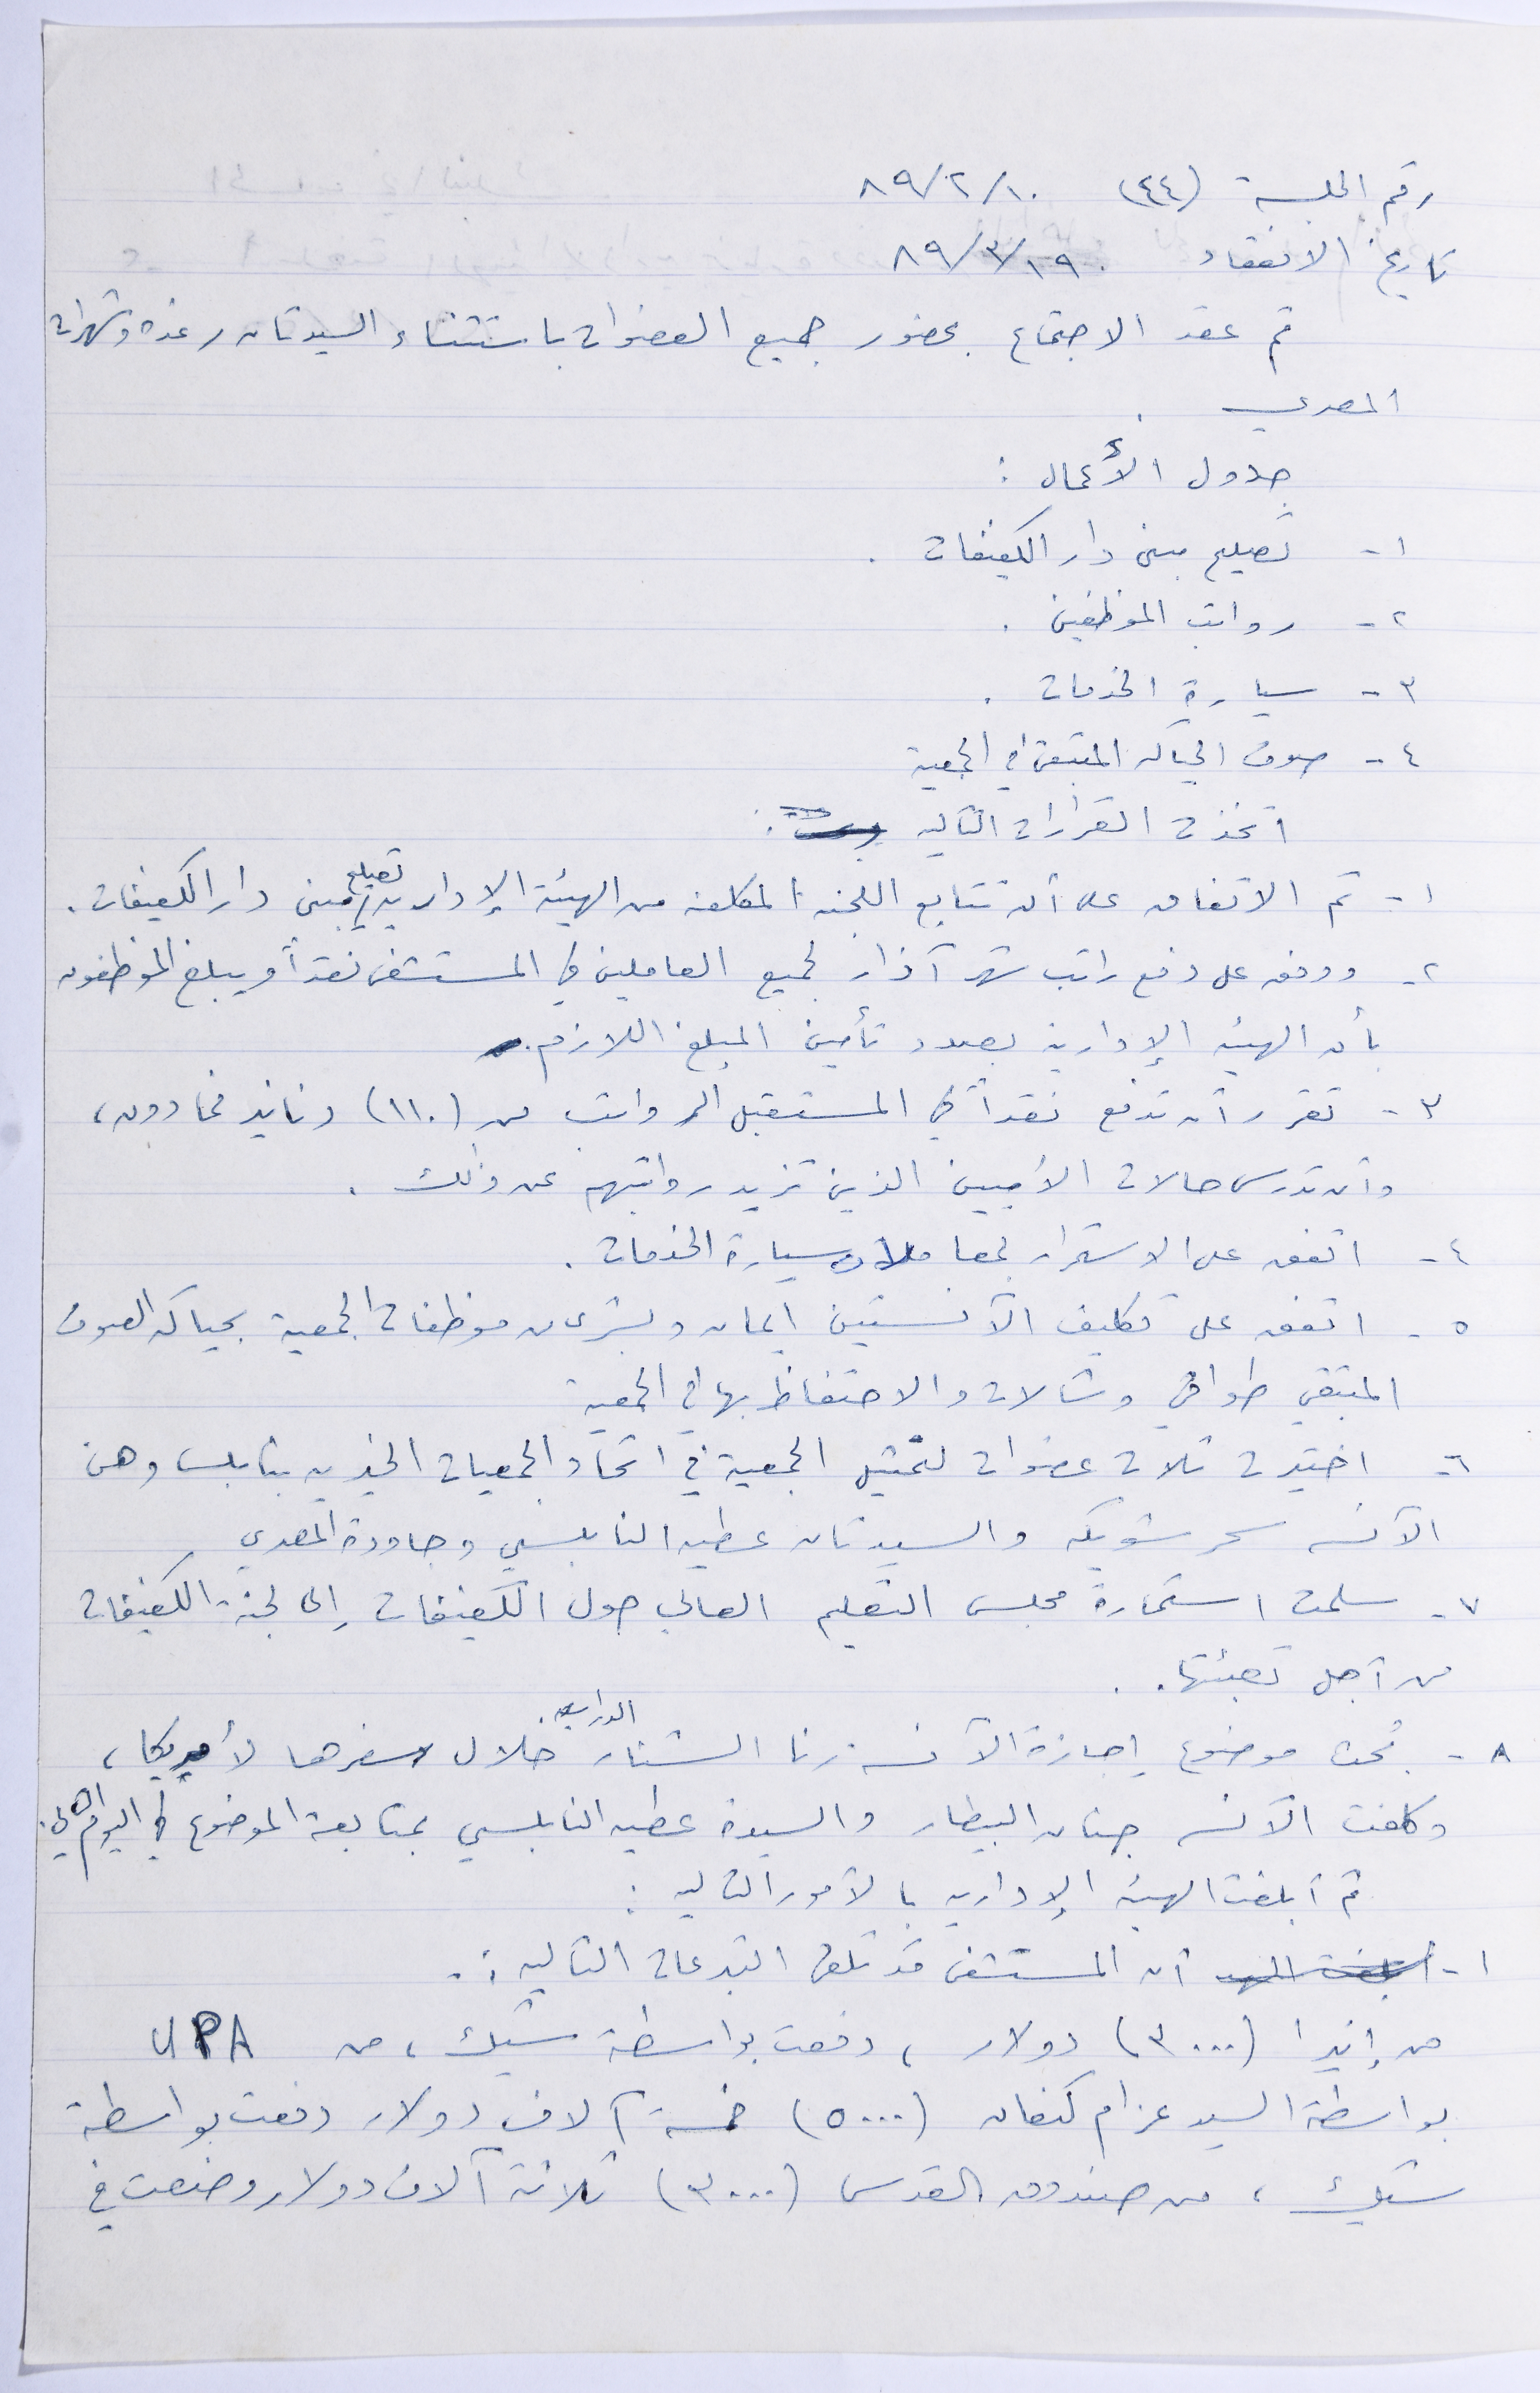 رقم الجلسة (٤٤) ٨٩/٢/١٠
تاريخ الانعقاد ٨٩/٣/١٩
تم عقد الاجتماع بحضور جميع العضوات باستثناء السيدتان رغده وشهرات
المصري .
جدول الأعمال :
١- تصليح مبنى دار الكفيفات .
٢- رواتب الموظفين .
٣- سيارة الخدمات .
٤- صوف الحياكه المتبقي في الجمعية
اتخذت القرارات التاليه :
١- تم الاتفاق على أن تتابع اللجنه المكلفه من الهيئة الإداريه تصليح مبنى دار الكفيفات .
٢- ووفق على دفع راتب شهر آذار لجميع العاملين في المستشفى نقداً ويبلغ الموظفون
بأن الهيئه الإدارية بصدد تأمين المبلغ اللازم .
٣- تقرر أن تدفع نقداً في المستقبل الرواتب من (١١٠) دنانير فما دون ،
وأن تدرس حالات الأميين الذين تزيد رواتبهم عن ذلك .
٤- اتفق على الاستمرار بمعاملات سيارة الخدمات .
٥- اتفق على تكليف الآنستين ايمان وبشرى من موظفات الجمعية بحياكه الصوف
المتبقي طواقي وشالات والاحتفاظ بها في الجمعيه
٦- اختيرت ثلاث عضوات لتمثيل الجمعية في اتحاد الجمعيات الخيريه بنابلس وهن
الآنسه سحر شويكه والسيدتان عطيه النابلسي وجاودة المصري
٧- سلمت استمارة مجلس التعليم العالي حول الكفيفات إلى لجنة الكفيفات
من أجل تعبئتها .
٨- بُحث موضوع إجازة الآنسه رنا الشنار الدراسيه خلال سفرها لأمريكا ،
وكلفت الآنسه جنان البيطار والسيدة عطيه النابلسي بمتابعة الموضوع في اليوم التالي .
ثم أبلغت الهيئه الإداريه بالأمور التاليه :
١- أبلغت الهيـ أن المستشفى قد تلقى التبرعات التاليه :
من إنيرا (٣٠٠٠) دولار ، دفعت بواسطة شيك ، من UPA
بواسطة السيد عزام كنعان (٥٠٠٠) خمسة آلاف دولار دفعت بواسطة
شيك ، من صندوق القدس (٣٠٠٠) ثلاثة آلاف دولار وضعت في